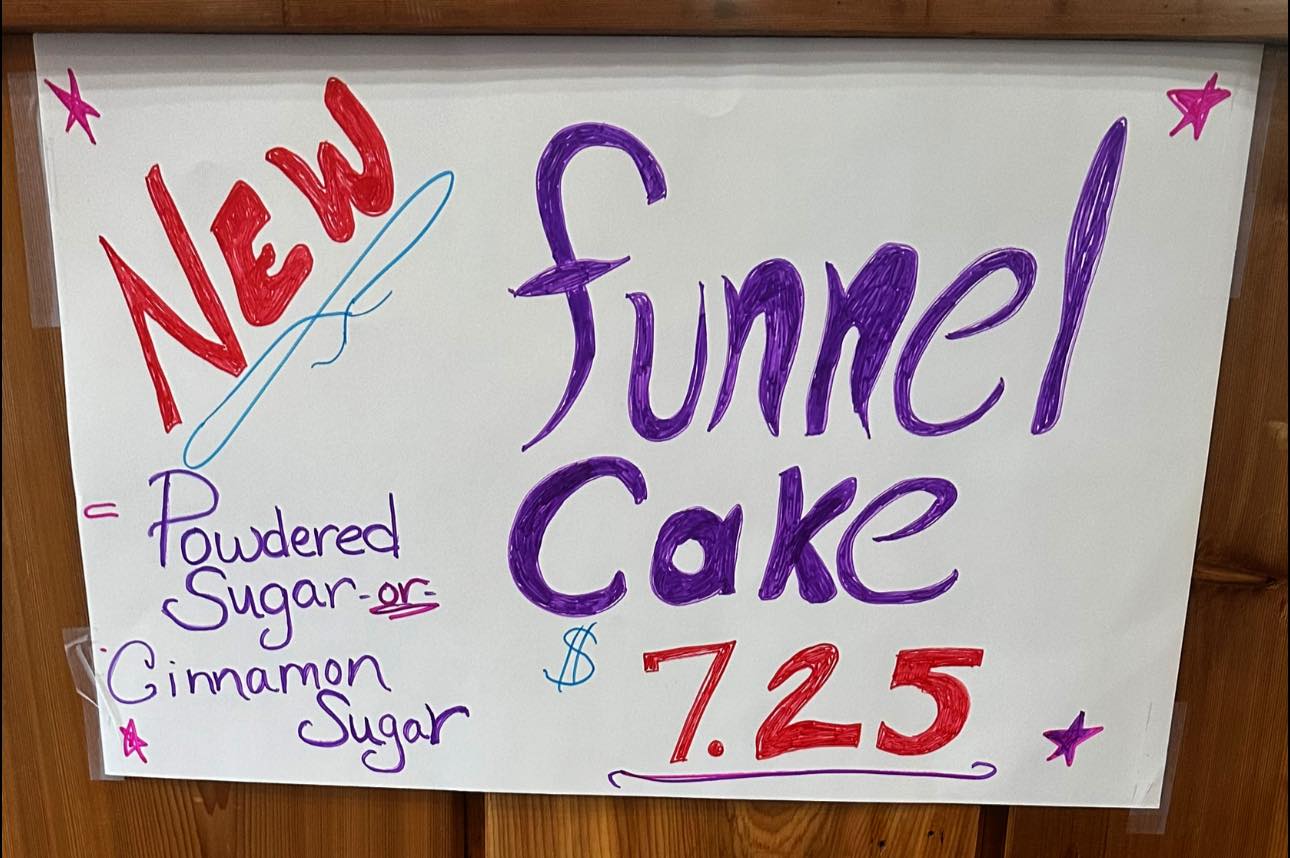 NEW
funnel
Cake
$ 7.25
= Powdered
Sugar -or-
Cinnamon
Sugar